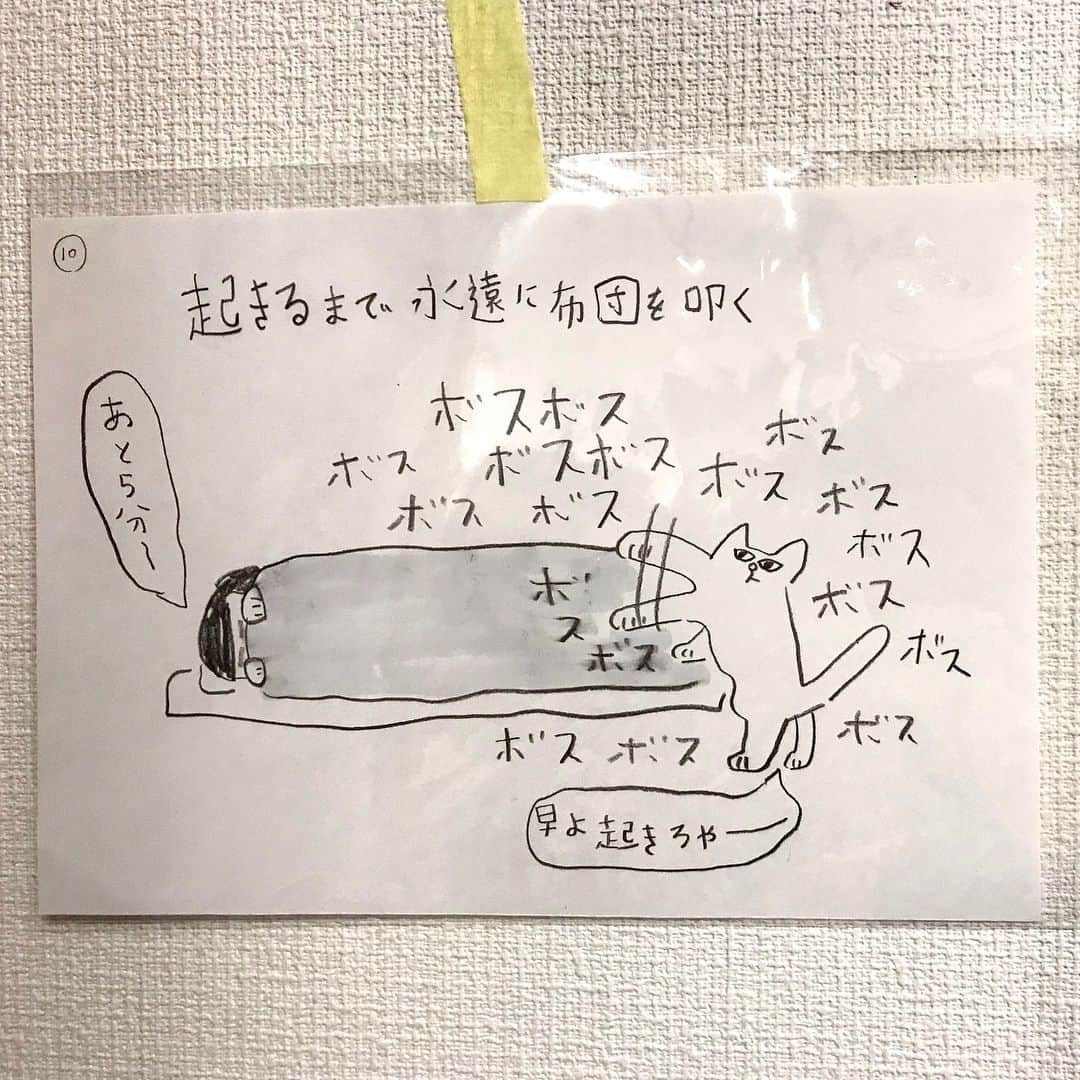 ⑩
起きるまで永遠に布団を叩く
あと5分〜
ボスボス
ボス ボスボス
ボス ボス
ボス
ボス
ボス
ボス
ボス
ボス
ボ
ス
ボス
ボス
ボス ボス
早よ起きろやー